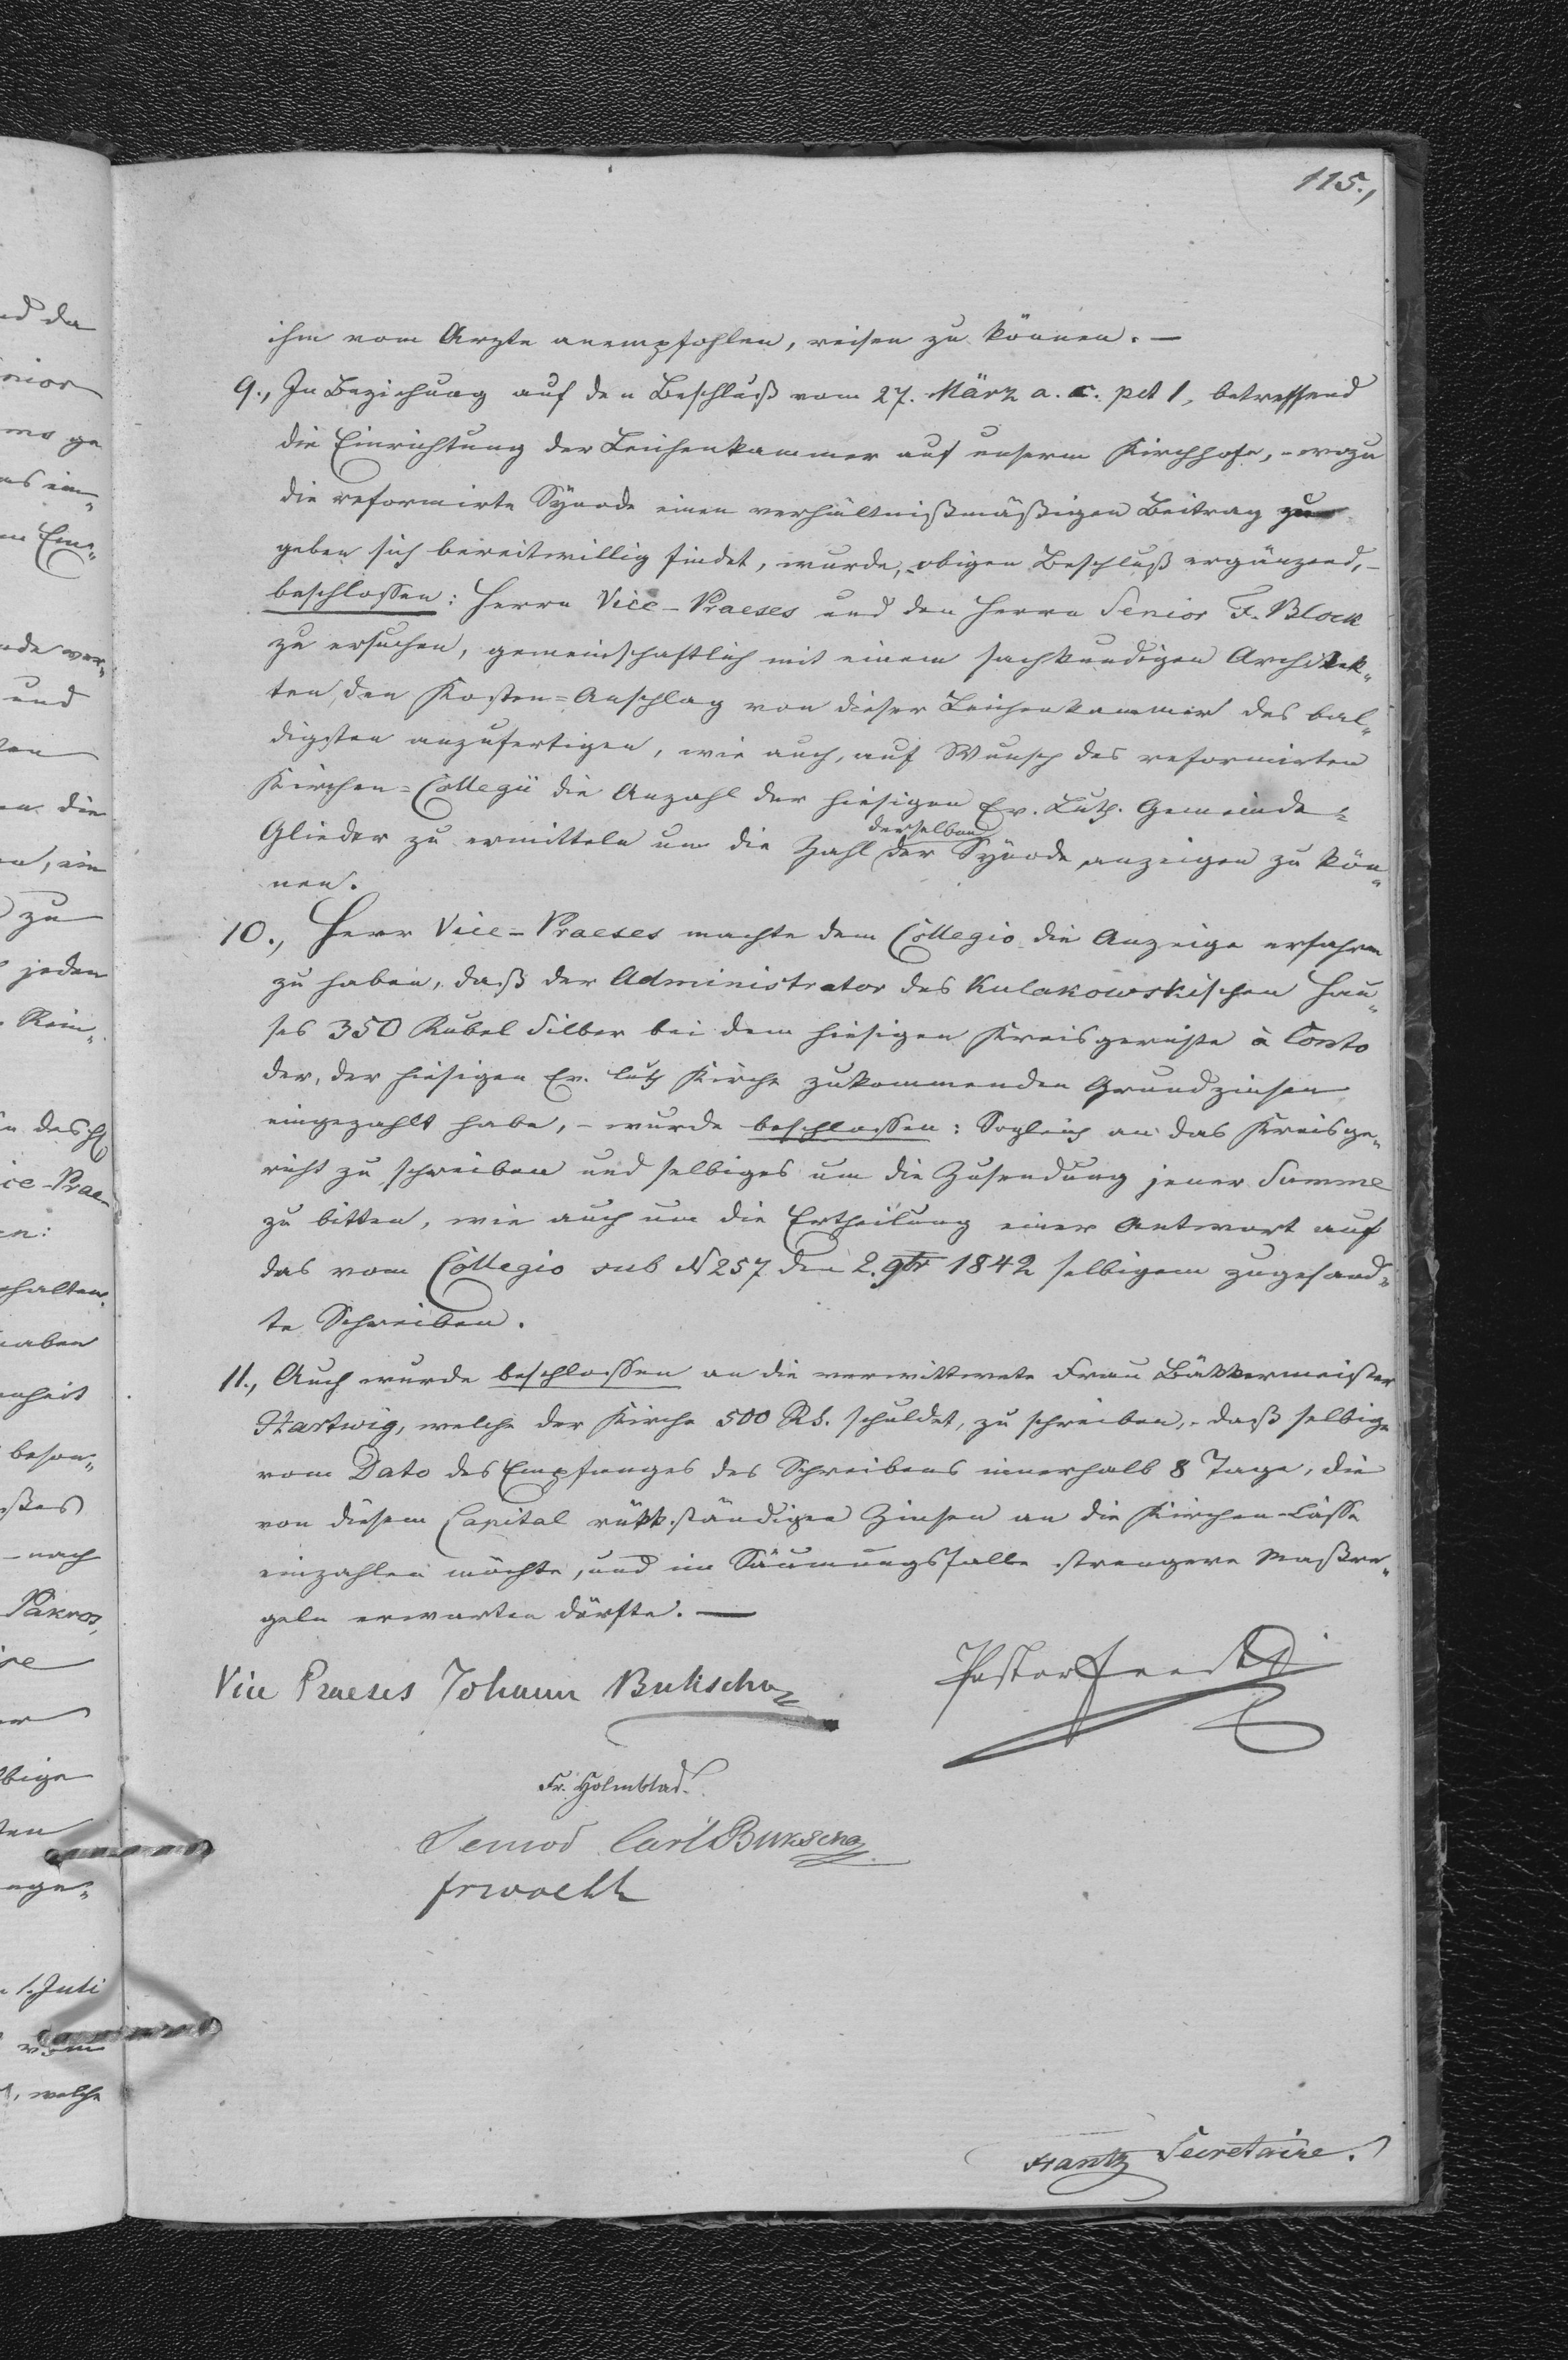 115.,
ihm vom Arzte anempfohlen, reisen zu können. —
9., In Beziehung auf den Beschluß vom 27. März a. c. pct 1, betreffend
die Einrichtung der Leichenkammer auf unserm Kirchhofe, - wozu
die reformirte Synode einen verhältnißmäßigen Beitrag zu
geben sich bereitwillig findet, wurde, obigen Beschluß ergänzend, -
beschlossen: Herrn Vice-Praeses und den Herrn Senior F. Block
zu ersuchen, gemeinschaftlich mit einem sachkundigen Architek„
ten, den Kosten=Anschlag von dieser Leichenkammer des bal„
digsten anzufertigen, wie auch, auf Wunsch des reformirten
Kirchen=Collegii die Anzahl der hiesigen Ev. Luth. Gemeinde=
derselben
Glieder zu ermitteln um die Zahl der Synode anzeigen zu kön„
nen.
10., Herr Vice-Praeses machte dem Collegio die Anzeige erfahren
zu haben, daß der Administrator des Kulakowskischen Hau„
ses 350 Rubel Silber bei dem hiesigen Kreisgerichte à Conto
der, der hiesigen Ev. luth Kirche zukommenden Grundzinsen
eingezahlt habe, - wurde beschlossen: Sogleich an das Kreisge„
richt zu schreiben und selbiges um die Zusendung jener Summe
zu bitten, wie auch um die Ertheilung einer Antwort auf
das vom Collegio sub N 257 den 2. 9br 1842 selbigem zugesand„
te Schreiben.
11., Auch wurde beschlossen an die verwittwete Frau Bäkkermeister
Hartwig, welche der Kirche 500 RS. schuldet, zu schreiben, - daß selbige
vom Dato des Empfanges des Schreibens innerhalb 8 Tage, die
von diesem Capital rükkständigen Zinsen an die Kirchen-Casse
einzahlen möchte, und im Säumungsfalle strengere Maßre„
geln erwarten dürfte. —
Vice Praeses Johann Bukscha
Pastor
Fr. Holmblad.
Senior Carl Bukscha
Frantz Secretaire.